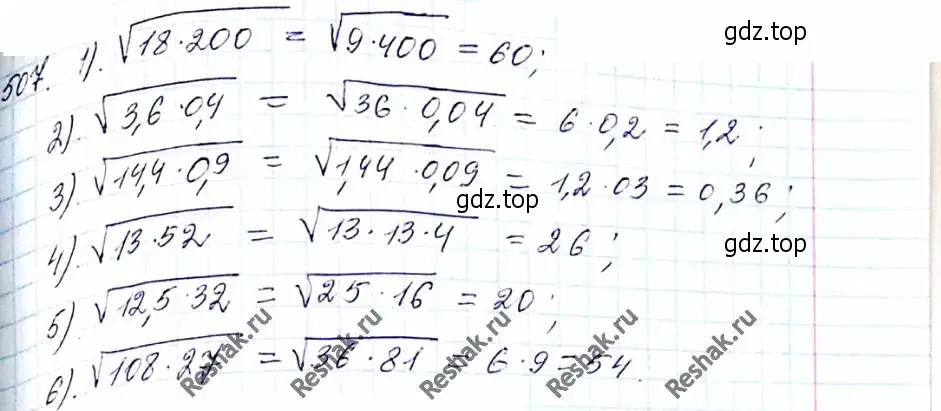 gdz.top
507. 1). √18·200 = √9·400 = 60;
2). √3,6·0,4 = √36·0,04 = 6·0,2 = 1,2;
3) √14,4·0,9 = √1,44·0,09 = 1,2·03 = 0,36;
gdz.top
4). √13·52 = √13·13·4 = 26;
gdz.top
5) √12,5·32 = √25·16 = 20;
6). √108·27 = √36·81 = 6·9=54.
Reshak.ru
Reshak.ru
Reshak.ru
Reshak.ru